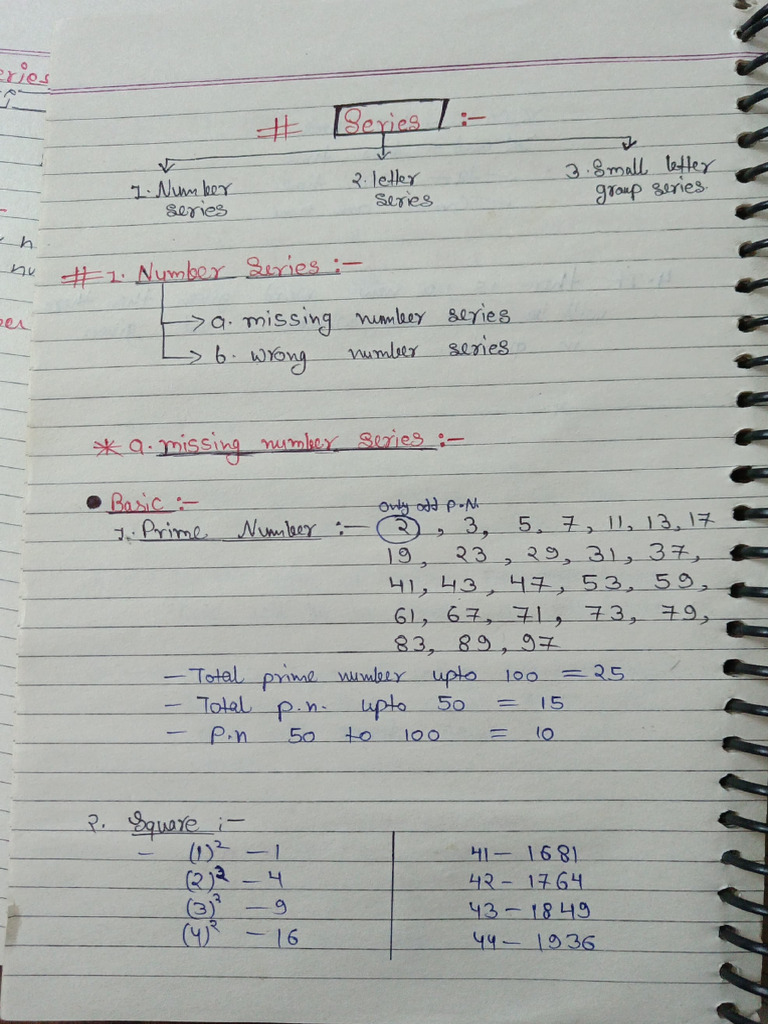 eries
# Series :-
1. Number series
2. letter series
3. Small letter group series.
# 1. Number Series :-
a. missing number series
b. wrong number series
* a. missing number series :-
• Basic :-
only odd P.N.
1. Prime Number :- 2, 3, 5, 7, 11, 13, 17
19, 23, 29, 31, 37,
41, 43, 47, 53, 59,
61, 67, 71, 73, 79,
83, 89, 97
- Total prime number upto 100 = 25
- Total p.n. upto 50 = 15
- P.n 50 to 100 = 10
2. Square :-
- (1)² - 1
(2)² - 4
(3)² - 9
(4)² - 16
41 - 1681
42 - 1764
43 - 1849
44 - 1936